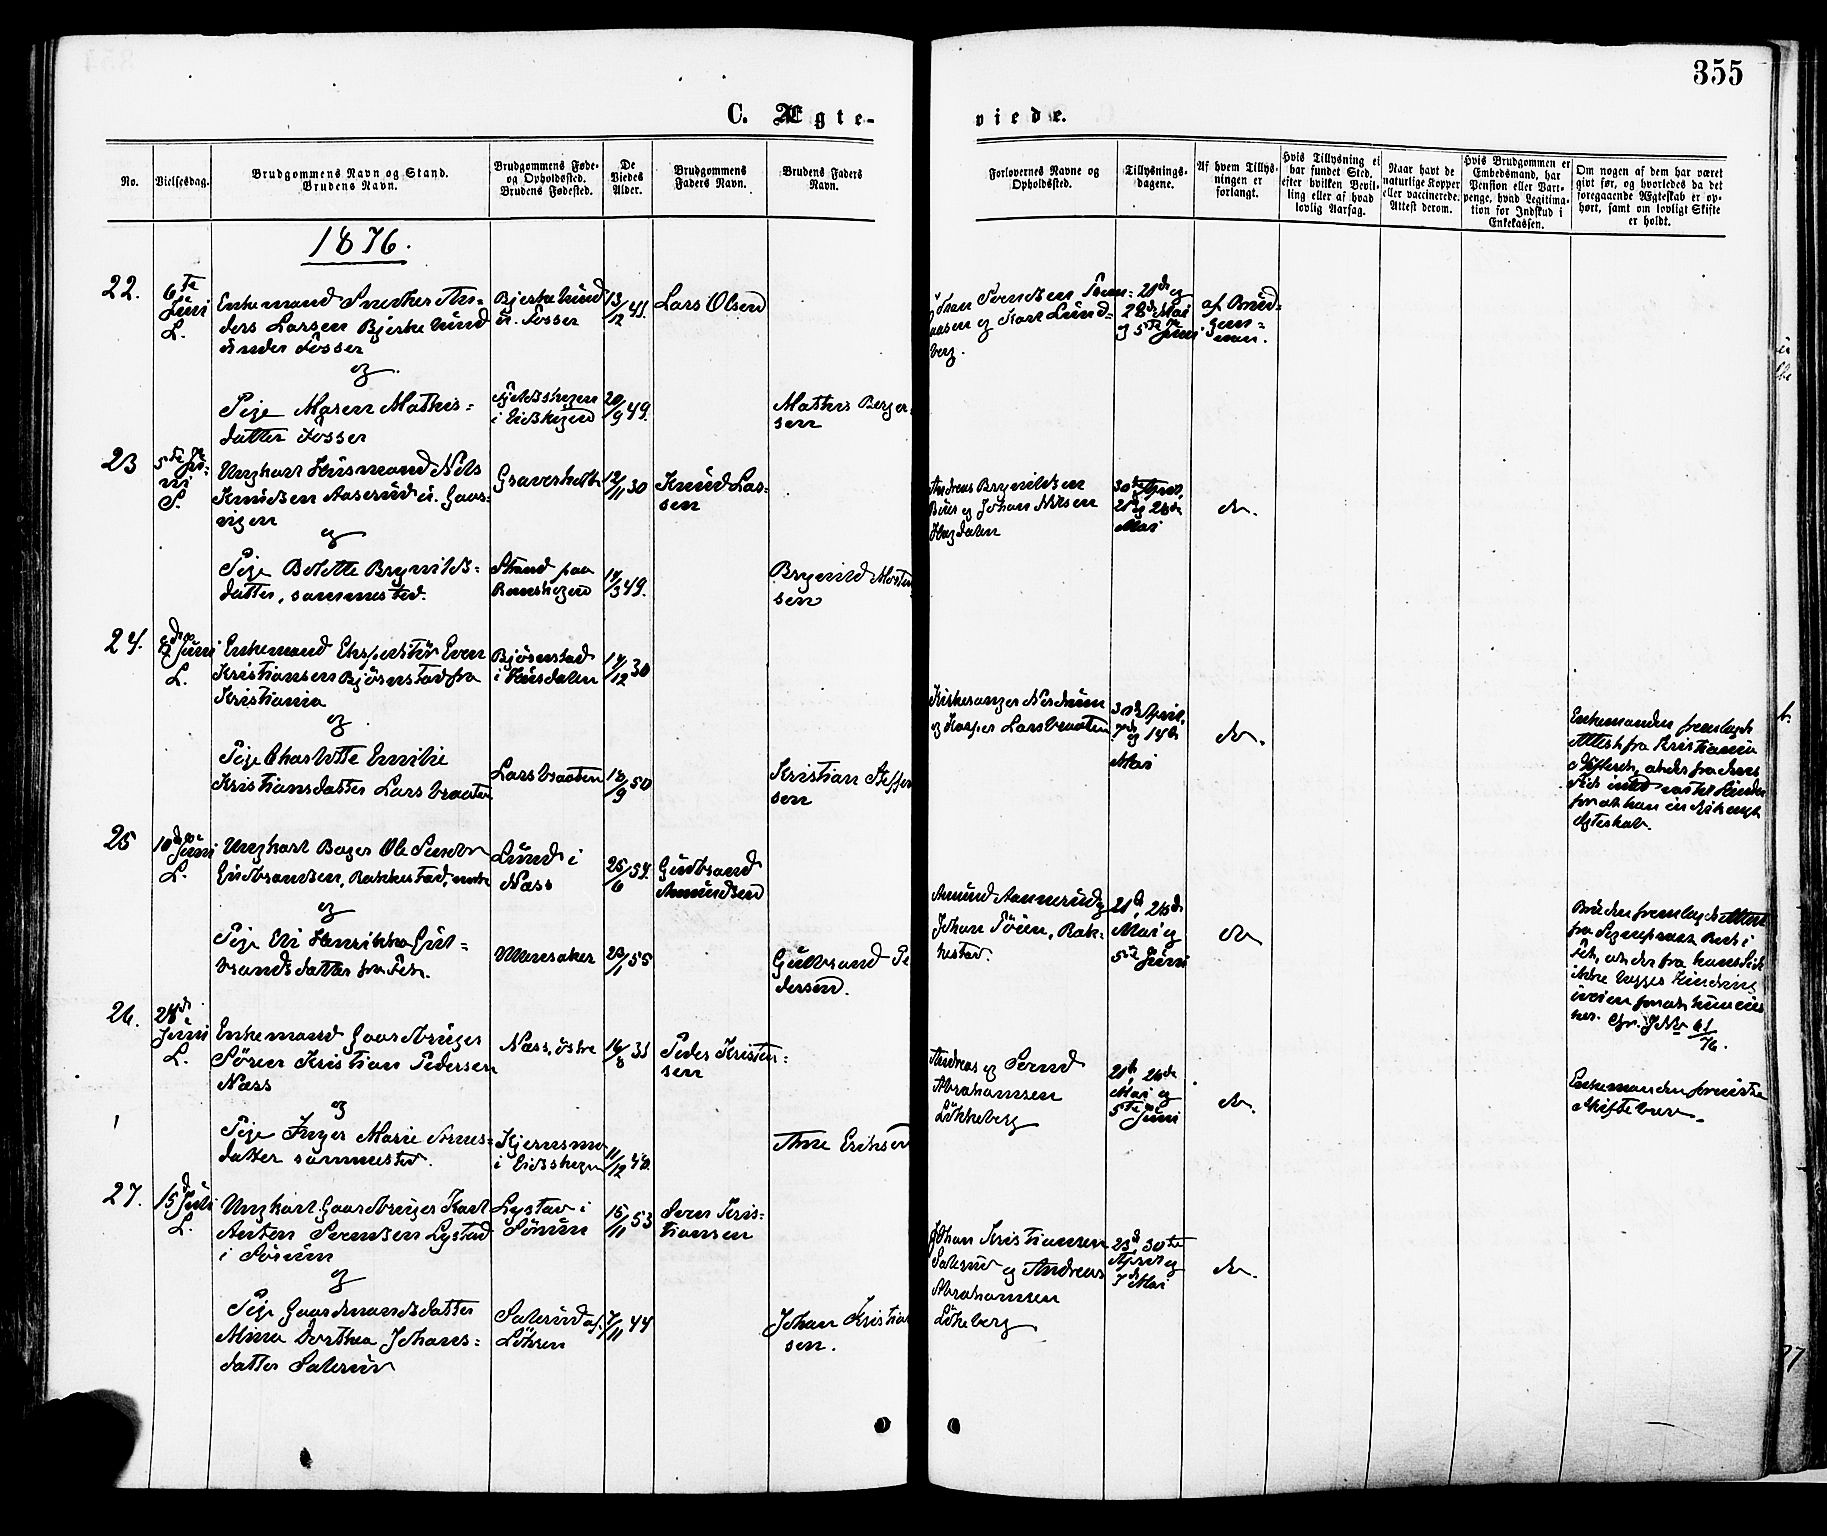 355
C. Ægte-
viede.
No.
Vielsesdag.
Brudgommens Navn og Stand.
Brudens Navn.
Brudgommens Føde-
og Opholdssted.
Brudens Fødested.
De
Viedes
Alder.
Brudgommens
Faders Navn.
Brudens Faders
Navn.
Forlovernes Navne og
Opholdssted.
Tillysnings-
dagene.
Af hvem Tillys-
ningen er
forlangt.
Hvis Tillysning ei
har fundet Sted,
efter hvilken Bevil-
ling eller af hvad
lovlig Aarsag.
Naar havt de
naturlige Kopper
eller vaccinerede.
Attest derom.
Hvis Brudgommen er
Embedsmand, har
Pension eller Vart-
penge, hvad Legitima-
tion for Indskud i
Enkekassen.
Om nogen af dem har været
givt før, og hvorledes da det
foregaaende Ægteskab er op-
hørt, samt om lovligt Skifte
er holdt.
1876.
22.
6te
Juni
L.
Enkemand Snedker An-
ders Larsen Bjerkelund
under Fosser
og
Pige Maren Mathis-
datter Fosser
Bjerkelund
u. Fosser
i Eidskogen
13/12 41
20/9 49.
Lars Olsen
Mathis Berger-
sen
Johan Svendsen
og Karl Lund-
berg.
21de og
28de Mai
og 5te Juni
af Brud-
gom-
men.
23
5te Ju-
ni
S.
Ungkarl Husmand Nils
Knudsen Aaserud u. Gaas-
vigen
og
Pige Bolette Brynilds-
datter, sammested.
Strand paa
Rømskogen
12/11 30
14/3 49.
Knud Las-
sen
Brynild Morten-
sen
Andreas Brynildsen
og Johan Nilsen
30te April,
21de og 28de
Mai
do.
24.
Juni
L.
Enkemand Ekspeditør Even
Kristiansen Bjørnstad fra
Kristiania
og
Pige Charlotte Emilie
Kristiansdatter Larsbraaten
Bjørnstad
Larsbraaten
14/12 30
18/9 50
Kristian Steffen-
sen
Kirkesanger Nerdrum
og Kasper Larsbraaten
30te April,
7de og 14de
Mai
do.
Enkemanden fremlagde
Attest fra Kristiania
Skifteret, at der fra dens
Side intet var til Hinder
for at han indgik nyt
Ægteskab.
25
10de Juni
L.
Ungkarl Bager Ole
Gudbrandsen, Rakkestad,
og
Pige Eli Henrikka Gul-
brandsdatter fra Fet.
Lund i
Næss
Ullensaker
25/6 54.
20/1 55
Gudbrand
Amundsen
Gulbrand Pe-
dersen.
Amund Aannerud og
Johan Søien, Rak-
kestad.
21de, 28de
Mai og
5te Juni
do
Bruden fremlagde Attest
fra Sogneprest Bech i
Fet, at der fra hans Side
ikke lagges Hindring
i veien for at hun
61/76.
26.
28de
Juni
L.
Enkemand Gaardbruger
Søren Kristian Pedersen
Næss
og
Pige Inger Marie Arnes-
datter sammested.
Næss, østre
Kjernsmo
i Eidskogen
16/8 31
11/12 40.
Peder Kristen-
sen
Arne Eriksen
Andreas og Svend
Abrahamsen
Løkkeberg
21de, 28de
Mai og
5te Juni
do.
Enkemanden foreviste
Skiftebrev.
27.
15de Juli
L.
Ungkarl Gaardbruger Karl
Anton Svendsen Lystad
i Sørum
og
Pige Gaardmandsdatter
Mina Dorthea Johans-
datter Saterud
Lystad i
Sørum
Løkren
15/11 53
7/11 44
Sven Kris-
tiansen
Johan Kristian-
sen.
Johan Kristiansen
Saterud og Andreas
Abrahamsen
Løkeberg
23de, 30te
April og
7de Mai
do.